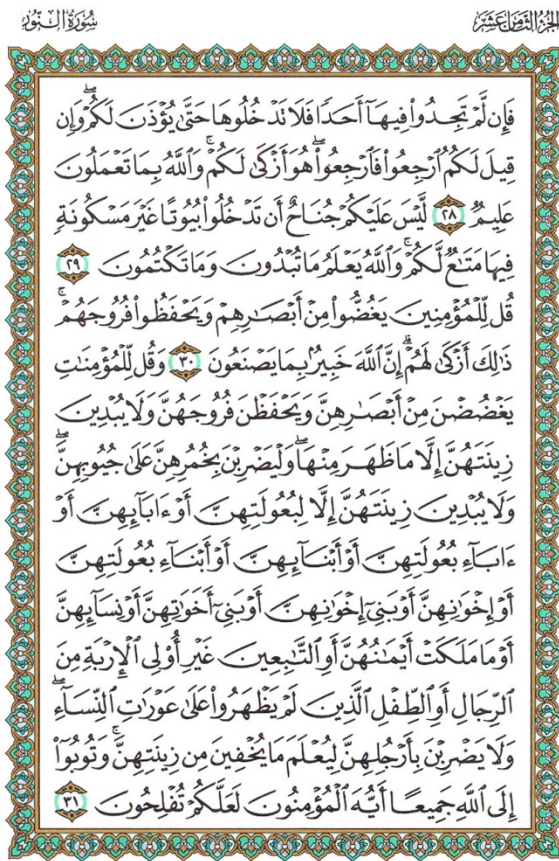 الجزء الثامن عشر
سورة النور
فَإِن لَّمْ تَجِدُوا۟ فِيهَآ أَحَدًا فَلَا تَدْخُلُوهَا حَتَّىٰ يُؤْذَنَ لَكُمْ ۖ وَإِن
قِيلَ لَكُمُ ٱرْجِعُوا۟ فَٱرْجِعُوا۟ ۖ هُوَ أَزْكَىٰ لَكُمْ ۚ وَٱللَّهُ بِمَا تَعْمَلُونَ
عَلِيمٌ ٢٨ لَّيْسَ عَلَيْكُمْ جُنَاحٌ أَن تَدْخُلُوا۟ بُيُوتًا غَيْرَ مَسْكُونَةٍ
فِيهَا مَتَـٰعٌ لَّكُمْ ۚ وَٱللَّهُ يَعْلَمُ مَا تُبْدُونَ وَمَا تَكْتُمُونَ ٢٩
قُل لِّلْمُؤْمِنِينَ يَغُضُّوا۟ مِنْ أَبْصَـٰرِهِمْ وَيَحْفَظُوا۟ فُرُوجَهُمْ ۚ
ذَٰلِكَ أَزْكَىٰ لَهُمْ ۗ إِنَّ ٱللَّهَ خَبِيرٌۢ بِمَا يَصْنَعُونَ ٣٠ وَقُل لِّلْمُؤْمِنَـٰتِ
يَغْضُضْنَ مِنْ أَبْصَـٰرِهِنَّ وَيَحْفَظْنَ فُرُوجَهُنَّ وَلَا يُبْدِينَ
زِينَتَهُنَّ إِلَّا مَا ظَهَرَ مِنْهَا ۖ وَلْيَضْرِبْنَ بِخُمُرِهِنَّ عَلَىٰ جُيُوبِهِنَّ ۖ
وَلَا يُبْدِينَ زِينَتَهُنَّ إِلَّا لِبُعُولَتِهِنَّ أَوْ ءَابَآئِهِنَّ أَوْ
ءَابَآءِ بُعُولَتِهِنَّ أَوْ أَبْنَآئِهِنَّ أَوْ أَبْنَآءِ بُعُولَتِهِنَّ
أَوْ إِخْوَٰنِهِنَّ أَوْ بَنِىٓ إِخْوَٰنِهِنَّ أَوْ بَنِىٓ أَخَوَٰتِهِنَّ أَوْ نِسَآئِهِنَّ
أَوْ مَا مَلَكَتْ أَيْمَـٰنُهُنَّ أَوِ ٱلتَّـٰبِعِينَ غَيْرِ أُو۟لِى ٱلْإِرْبَةِ مِنَ
ٱلرِّجَالِ أَوِ ٱلطِّفْلِ ٱلَّذِينَ لَمْ يَظْهَرُوا۟ عَلَىٰ عَوْرَٰتِ ٱلنِّسَآءِ ۖ
وَلَا يَضْرِبْنَ بِأَرْجُلِهِنَّ لِيُعْلَمَ مَا يُخْفِينَ مِن زِينَتِهِنَّ ۚ وَتُوبُوٓا۟
إِلَى ٱللَّهِ جَمِيعًا أَيُّهَ ٱلْمُؤْمِنُونَ لَعَلَّكُمْ تُفْلِحُونَ ٣١